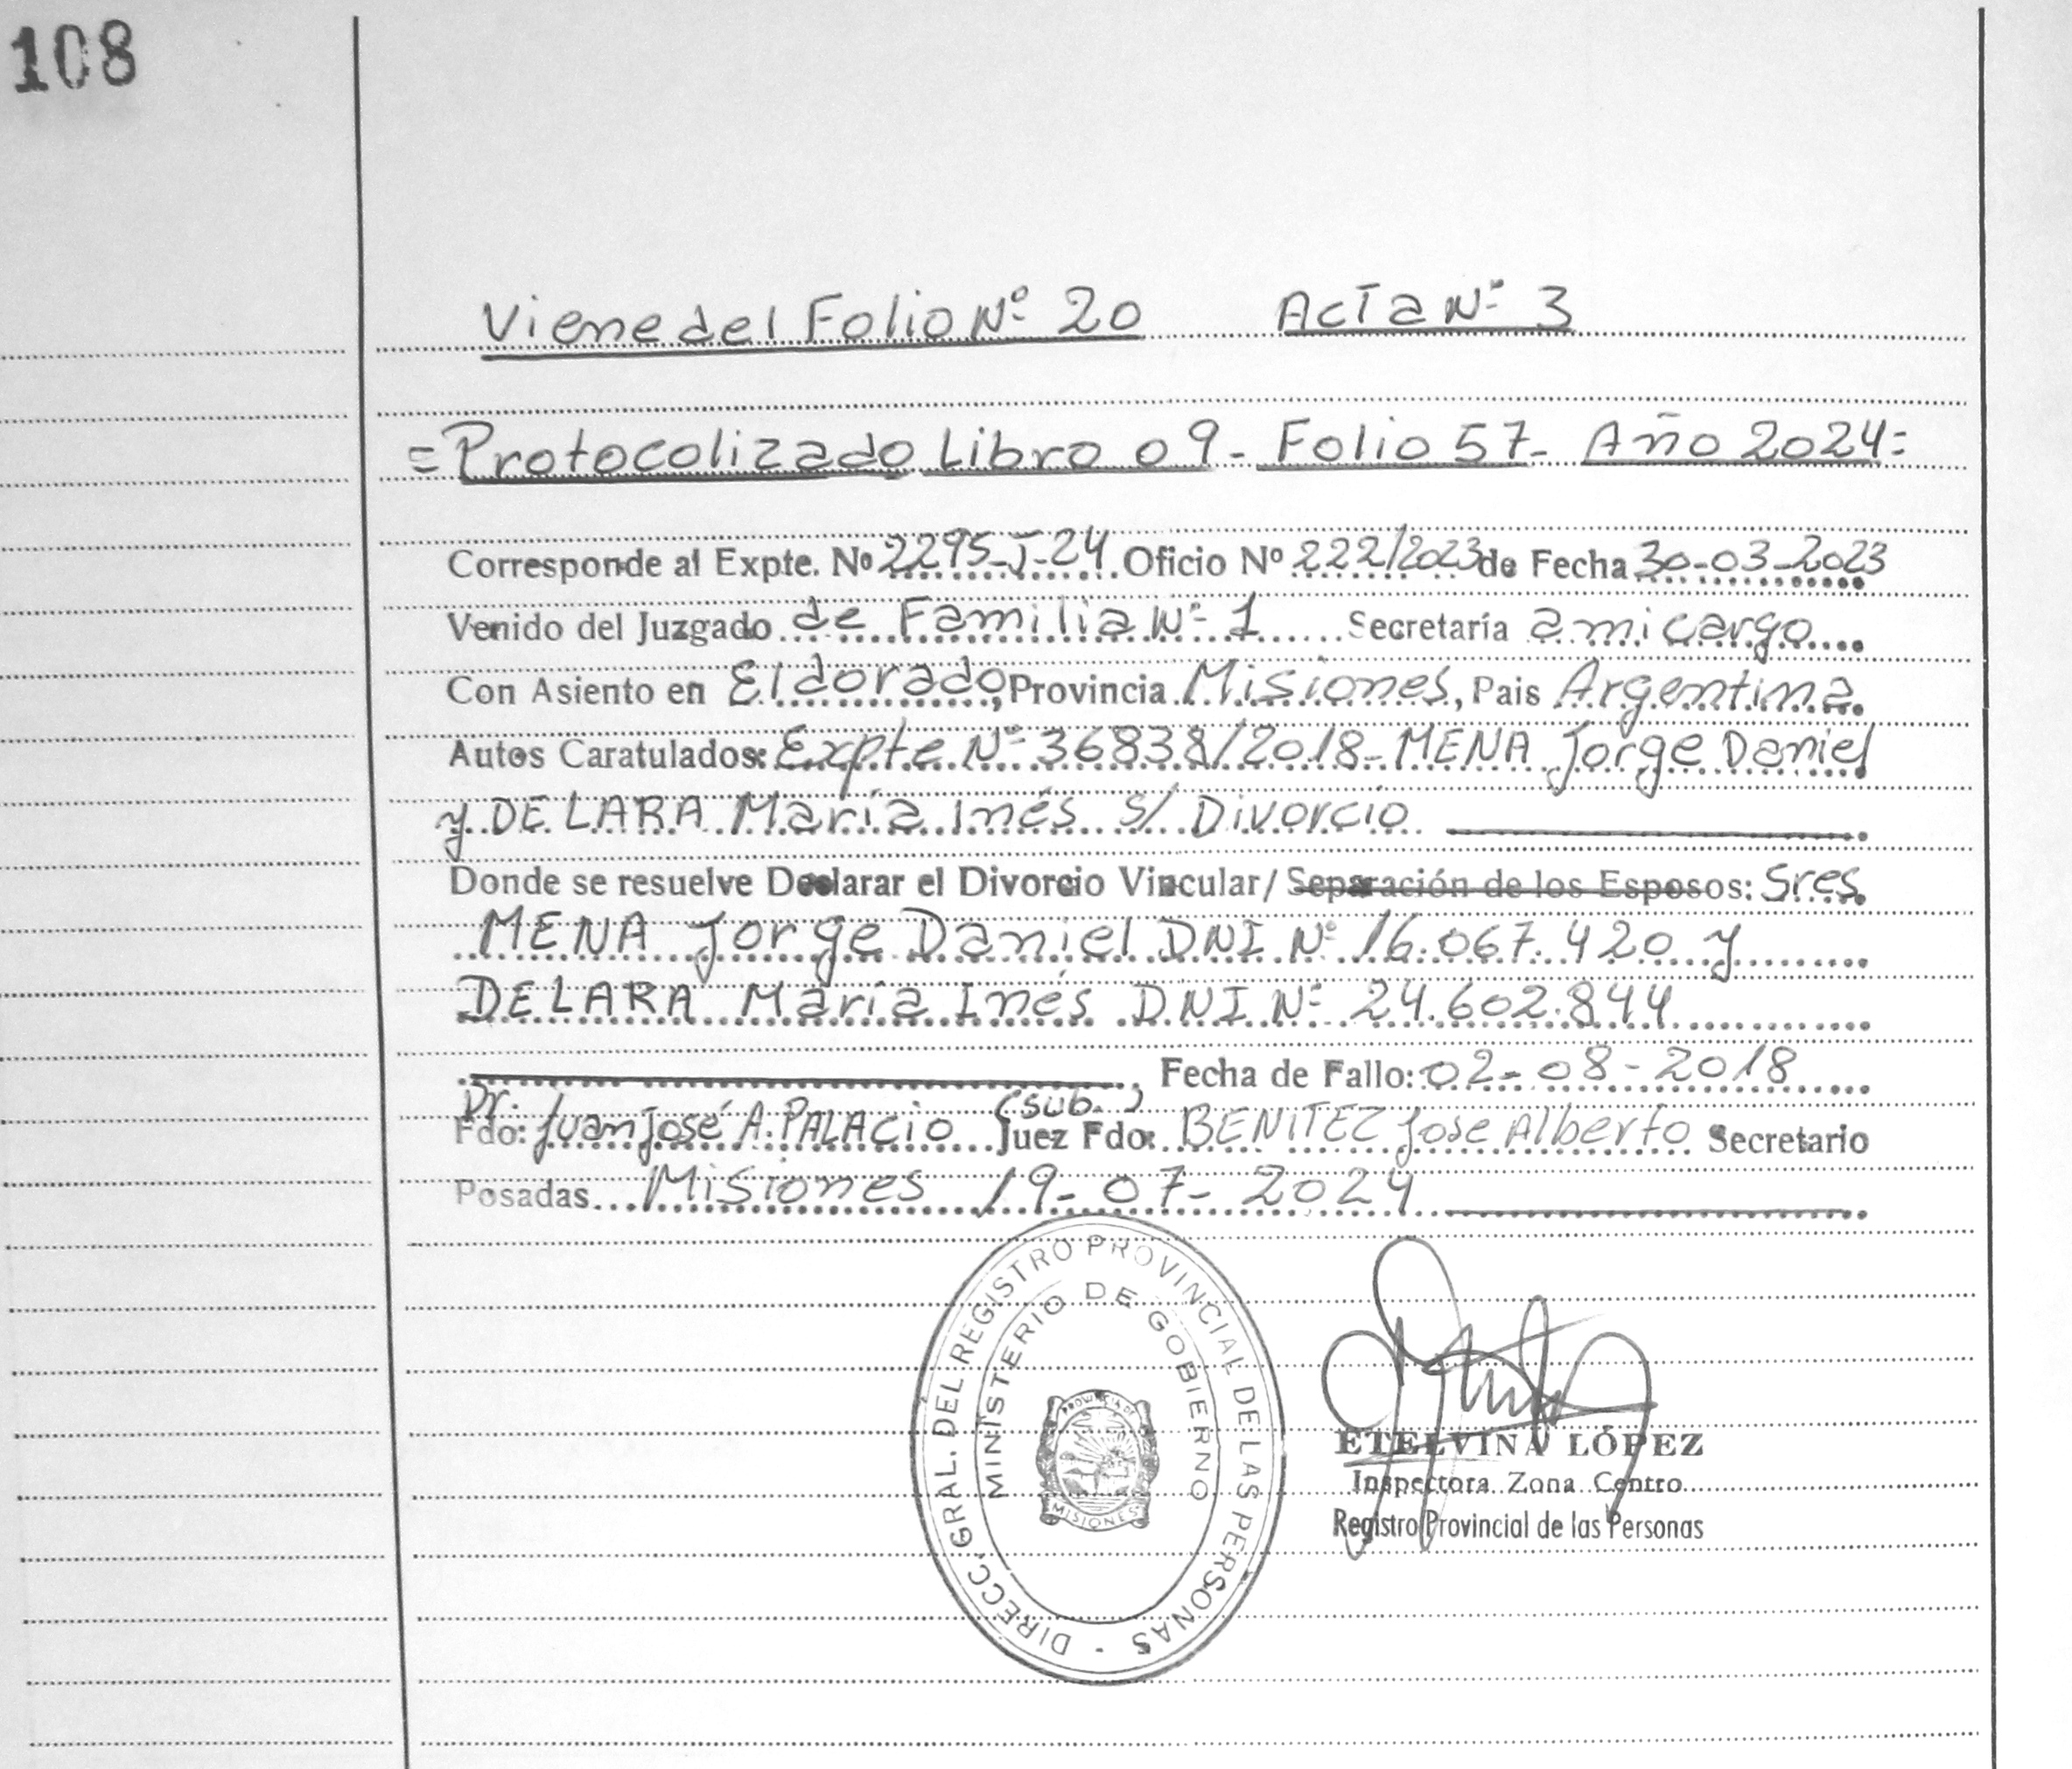 108
Viene del Folio Nº 20 Acta Nº 3
= Protocolizado Libro 09 - Folio 57 - Año 2024 =
Corresponde al Expte. Nº 2295-J-24 Oficio Nº 222/2023 de Fecha 30-03-2023
Venido del Juzgado de Familia Nº 1 Secretaría a mi cargo
Con Asiento en Eldorado, Provincia Misiones, Pais Argentina.
Autos Caratulados: Expte Nº 36838/2018 - MENA Jorge Daniel
y DE LARA María Inés s/ Divorcio
Donde se resuelve Declarar el Divorcio Vincular / Separación de los Esposos: Sres.
MENA Jorge Daniel DNI Nº 16.067.420 y
DE LARA María Inés DNI Nº 24.602.844
Fecha de Fallo: 02-08-2018
Dr. (sub.)
Fdo: Juan José A. PALACIO Juez Fdo: BENITEZ Jose Alberto Secretario
Posadas Misiones 19-07-2024
DIRECC. GRAL. DEL REGISTRO PROVINCIAL DE LAS PERSONAS -
MINISTERIO DE GOBIERNO
PROVINCIA DE
MISIONES
ETELVINA LÓPEZ
Inspectora Zona Centro
Registro Provincial de las Personas